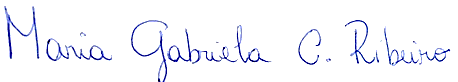 Maria Gabriela C. Ribeiro